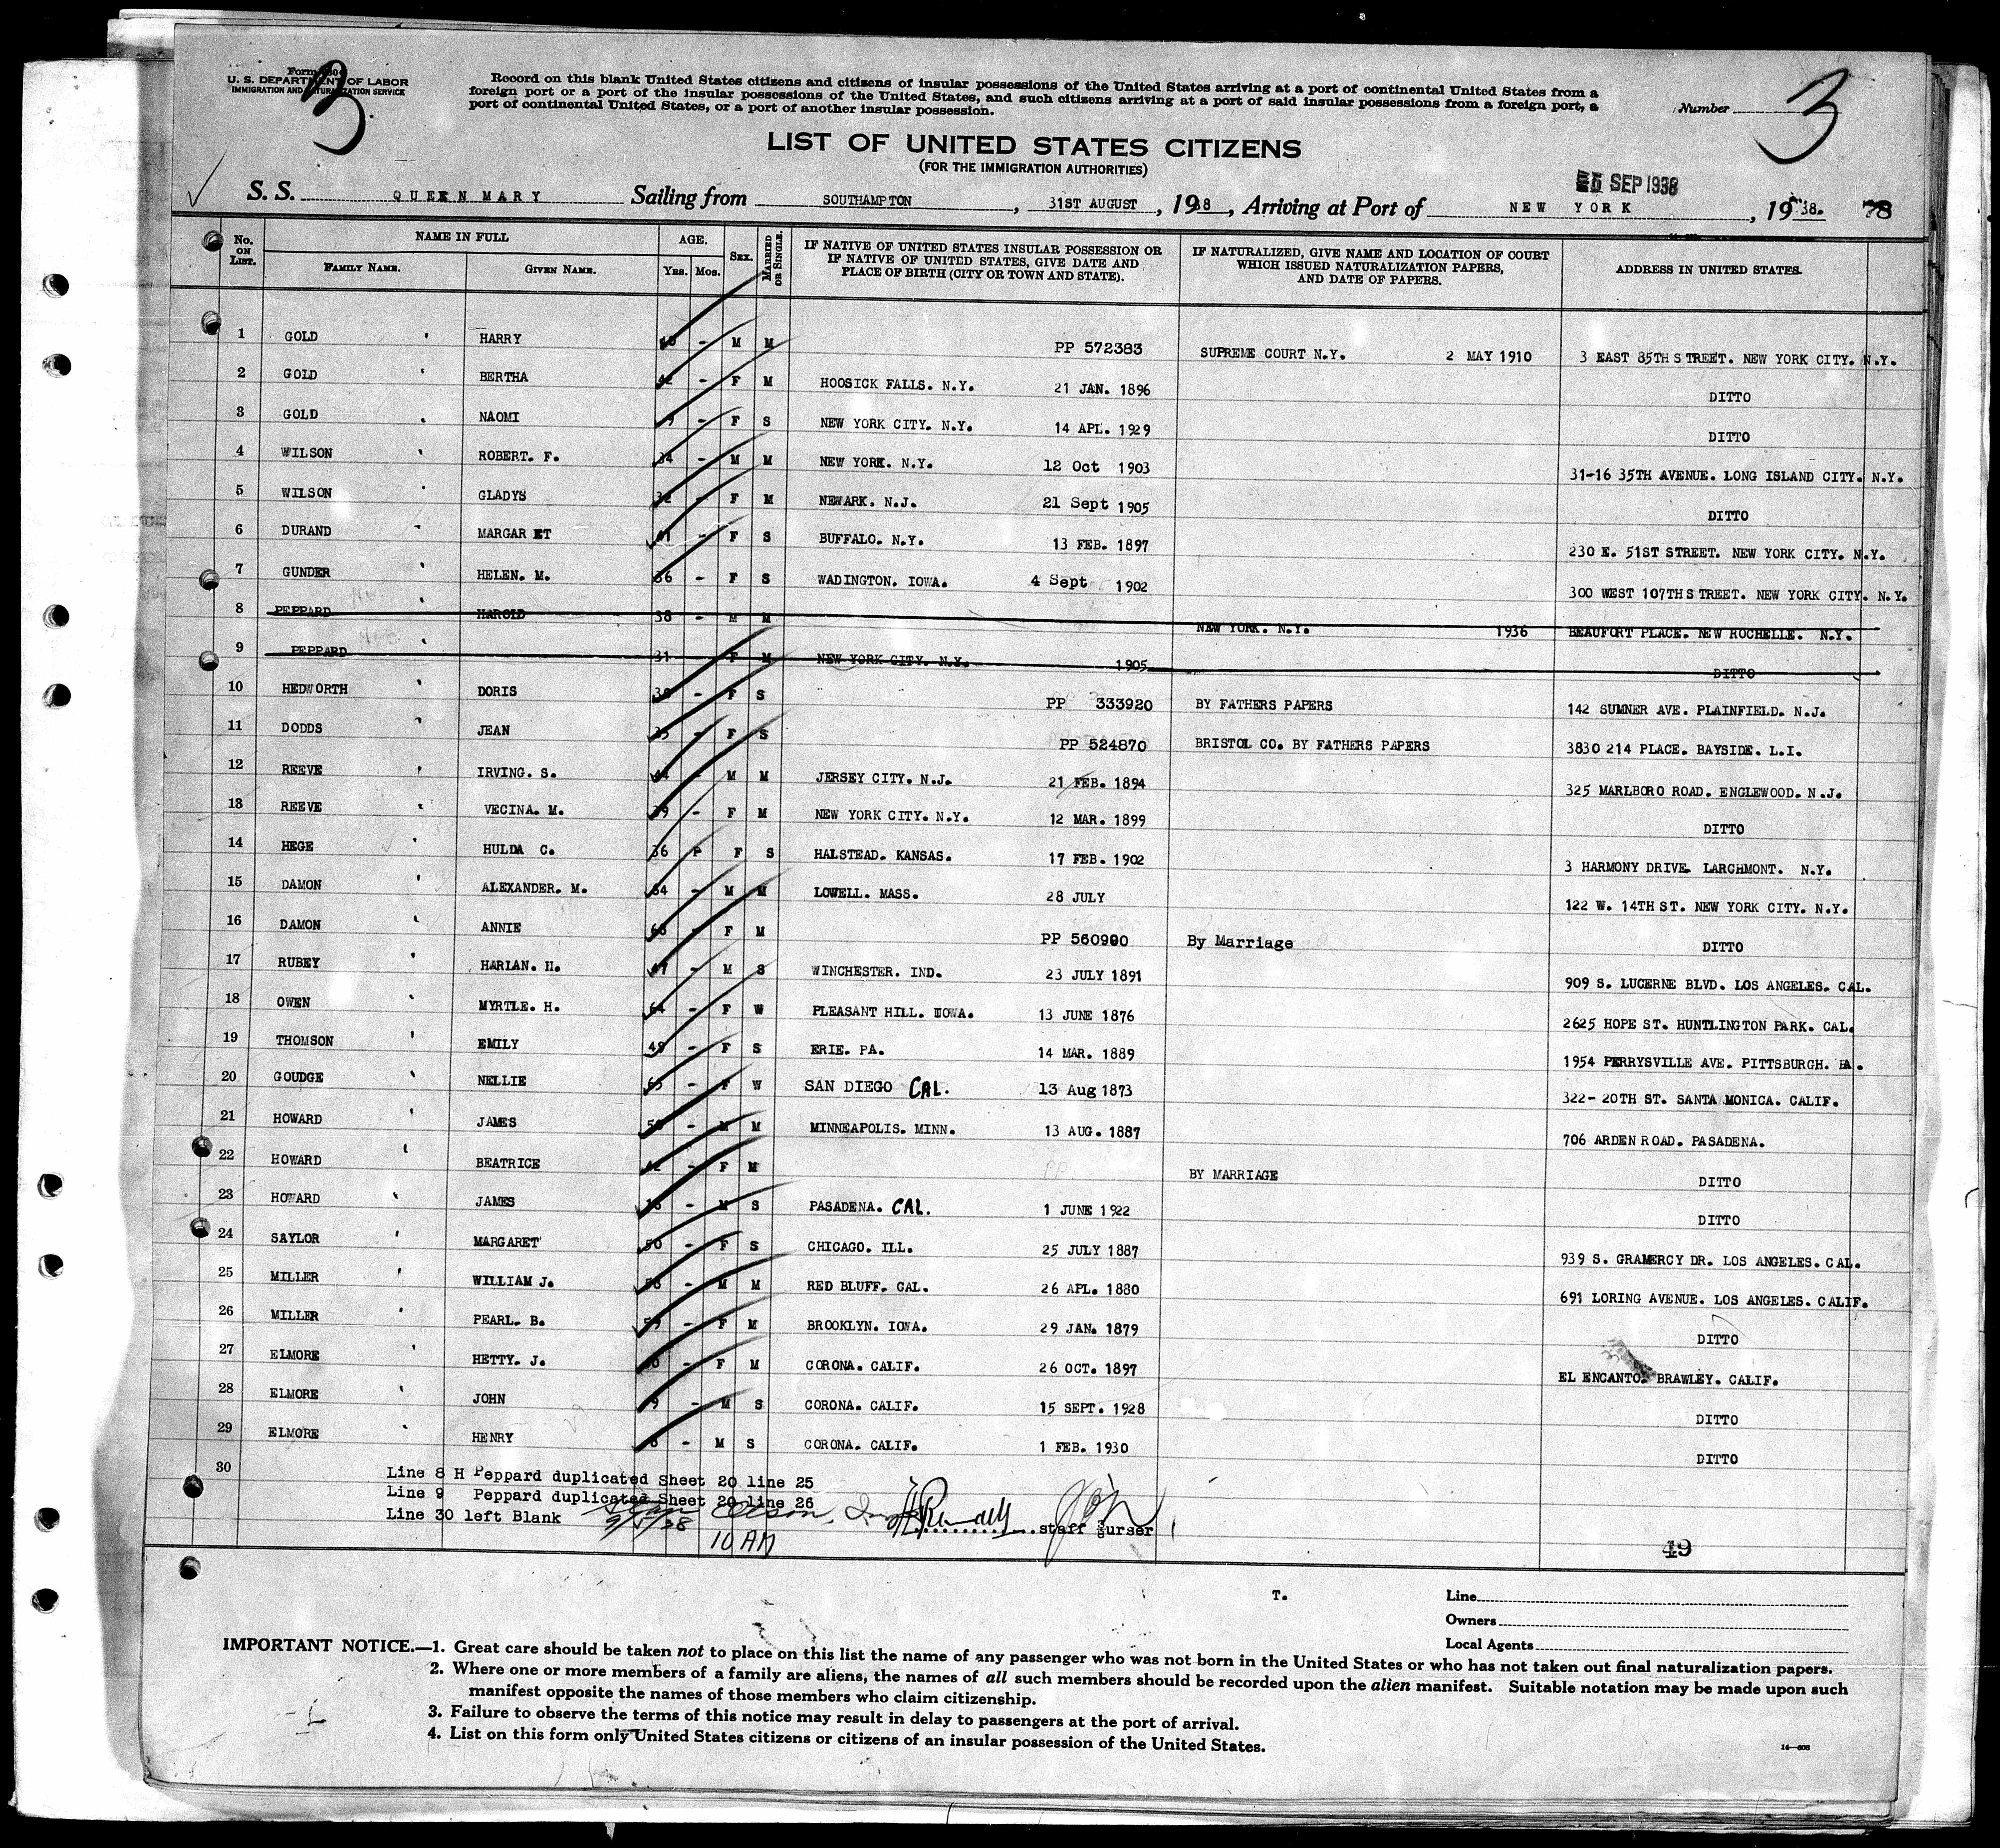 U. S. DEPARTMENT OF LABOR
IMMIGRATION AND NATURALIZATION SERVICE
3
Record on this blank United States citizens and citizens of insular possessions of the United States arriving at a port of continental United States from a
foreign port or a port of the insular possessions of the United States, and such citizens arriving at a port of said insular possessions from a foreign port, a
port of continental United States, or a port of another insular possession.
Number 3
LIST OF UNITED STATES CITIZENS
(FOR THE IMMIGRATION AUTHORITIES)
SEP 1938
S. S. QUEEN MARY Sailing from SOUTHAMPTON, 31ST AUGUST, 1938, Arriving at Port of NEW YORK, 1938. 78
No. ON LIST. NAME IN FULL FAMILY NAME. GIVEN NAME. AGE. Yrs. Mos. SEX. MARRIED OR SINGLE. IF NATIVE OF UNITED STATES INSULAR POSSESSION OR IF NATIVE OF UNITED STATES, GIVE DATE AND PLACE OF BIRTH (CITY OR TOWN AND STATE). IF NATURALIZED, GIVE NAME AND LOCATION OF COURT WHICH ISSUED NATURALIZATION PAPERS, AND DATE OF PAPERS. ADDRESS IN UNITED STATES.
1 GOLD HARRY - M M PP 572383 SUPREME COURT N.Y. 2 MAY 1910 3 EAST 85TH STREET. NEW YORK CITY. N.Y.
2 GOLD BERTHA 42 - F M HOOSICK FALLS. N.Y. 21 JAN. 1896 DITTO
3 GOLD NAOMI 9 - F S NEW YORK CITY. N.Y. 14 APL. 1929 DITTO
4 WILSON ROBERT. F. 34 - M M NEW YORK. N.Y. 12 Oct 1903 31-16 35TH AVENUE. LONG ISLAND CITY. N.Y.
5 WILSON GLADYS 32 - F M NEWARK. N.J. 21 Sept 1905 DITTO
6 DURAND MARGARET 41 - F S BUFFALO. N.Y. 13 FEB. 1897 230 E. 51ST STREET. NEW YORK CITY. N.Y.
7 GUNDER HELEN. M. 36 - F S WADINGTON. IOWA. 4 Sept 1902 300 WEST 107TH STREET. NEW YORK CITY. N.Y.
8 PEPPARD HAROLD 38 - M M NEW YORK. N.Y. 1936 BEAUFORT PLACE. NEW ROCHELLE. N.Y.
9 PEPPARD 31 F M NEW YORK CITY. N.Y. 1905 DITTO
10 HEDWORTH DORIS - F S PP 333920 BY FATHERS PAPERS 142 SUMNER AVE. PLAINFIELD. N.J.
11 DODDS JEAN - F S PP 524870 BRISTOL CO. BY FATHERS PAPERS 3830 214 PLACE. BAYSIDE. L.I.
12 REEVE IRVING. S. 44 - M M JERSEY CITY. N.J. 21 FEB. 1894 325 MARLBORO ROAD. ENGLEWOOD. N.J.
13 REEVE VECINA. M. 39 - F M NEW YORK CITY. N.Y. 12 MAR. 1899 DITTO
14 HEGE HULDA C. 36 F S HALSTEAD. KANSAS. 17 FEB. 1902 3 HARMONY DRIVE. LARCHMONT. N.Y.
15 DAMON ALEXANDER. M. 64 - M M LOWELL. MASS. 28 JULY 122 W. 14TH ST. NEW YORK CITY. N.Y.
16 DAMON ANNIE - F M PP 560990 By Marriage DITTO
17 RUBEY HARLAN. H. 47 - M S WINCHESTER. IND. 23 JULY 1891 909 S. LUCERNE BLVD. LOS ANGELES. CAL.
18 OWEN MYRTLE. H. 64 - F W PLEASANT HILL. IOWA. 13 JUNE 1876 2625 HOPE ST. HUNTLINGTON PARK. CAL.
19 THOMSON EMILY 49 - F S ERIE. PA. 14 MAR. 1889 1954 PERRYSVILLE AVE. PITTSBURGH. PA.
20 GOUDGE NELLIE 65 - F W SAN DIEGO CAL. 13 Aug 1873 322- 20TH ST. SANTA MONICA. CALIF.
21 HOWARD JAMES - M M MINNEAPOLIS. MINN. 13 AUG. 1887 706 ARDEN ROAD. PASADENA.
22 HOWARD BEATRICE 42 - F M PP BY MARRIAGE DITTO
23 HOWARD JAMES 16 - M S PASADENA. CAL. 1 JUNE 1922 DITTO
24 SAYLOR MARGARET 50 - F S CHICAGO. ILL. 25 JULY 1887 939 S. GRAMERCY DR. LOS ANGELES. CAL.
25 MILLER WILLIAM J. 58 - M M RED BLUFF. CAL. 26 APL. 1880 691 LORING AVENUE. LOS ANGELES. CALIF.
26 MILLER PEARL. B. 59 - F M BROOKLYN. IOWA. 29 JAN. 1879 DITTO
27 ELMORE HETTY. J. - F M CORONA. CALIF. 26 OCT. 1897 EL ENCANTO. BRAWLEY. CALIF.
28 ELMORE JOHN 9 - M S CORONA. CALIF. 15 SEPT. 1928 DITTO
29 ELMORE HENRY 8 - M S CORONA. CALIF. 1 FEB. 1930 DITTO
30
Line 8 H Peppard duplicated Sheet 20 line 25
Line 9 Peppard duplicated Sheet 20 line 26
Line 30 left Blank
staff Purser
10 AM
49
T.
Line
Owners
Local Agents
IMPORTANT NOTICE.—1. Great care should be taken not to place on this list the name of any passenger who was not born in the United States or who has not taken out final naturalization papers.
2. Where one or more members of a family are aliens, the names of all such members should be recorded upon the alien manifest. Suitable notation may be made upon such
manifest opposite the names of those members who claim citizenship.
3. Failure to observe the terms of this notice may result in delay to passengers at the port of arrival.
4. List on this form only United States citizens or citizens of an insular possession of the United States.